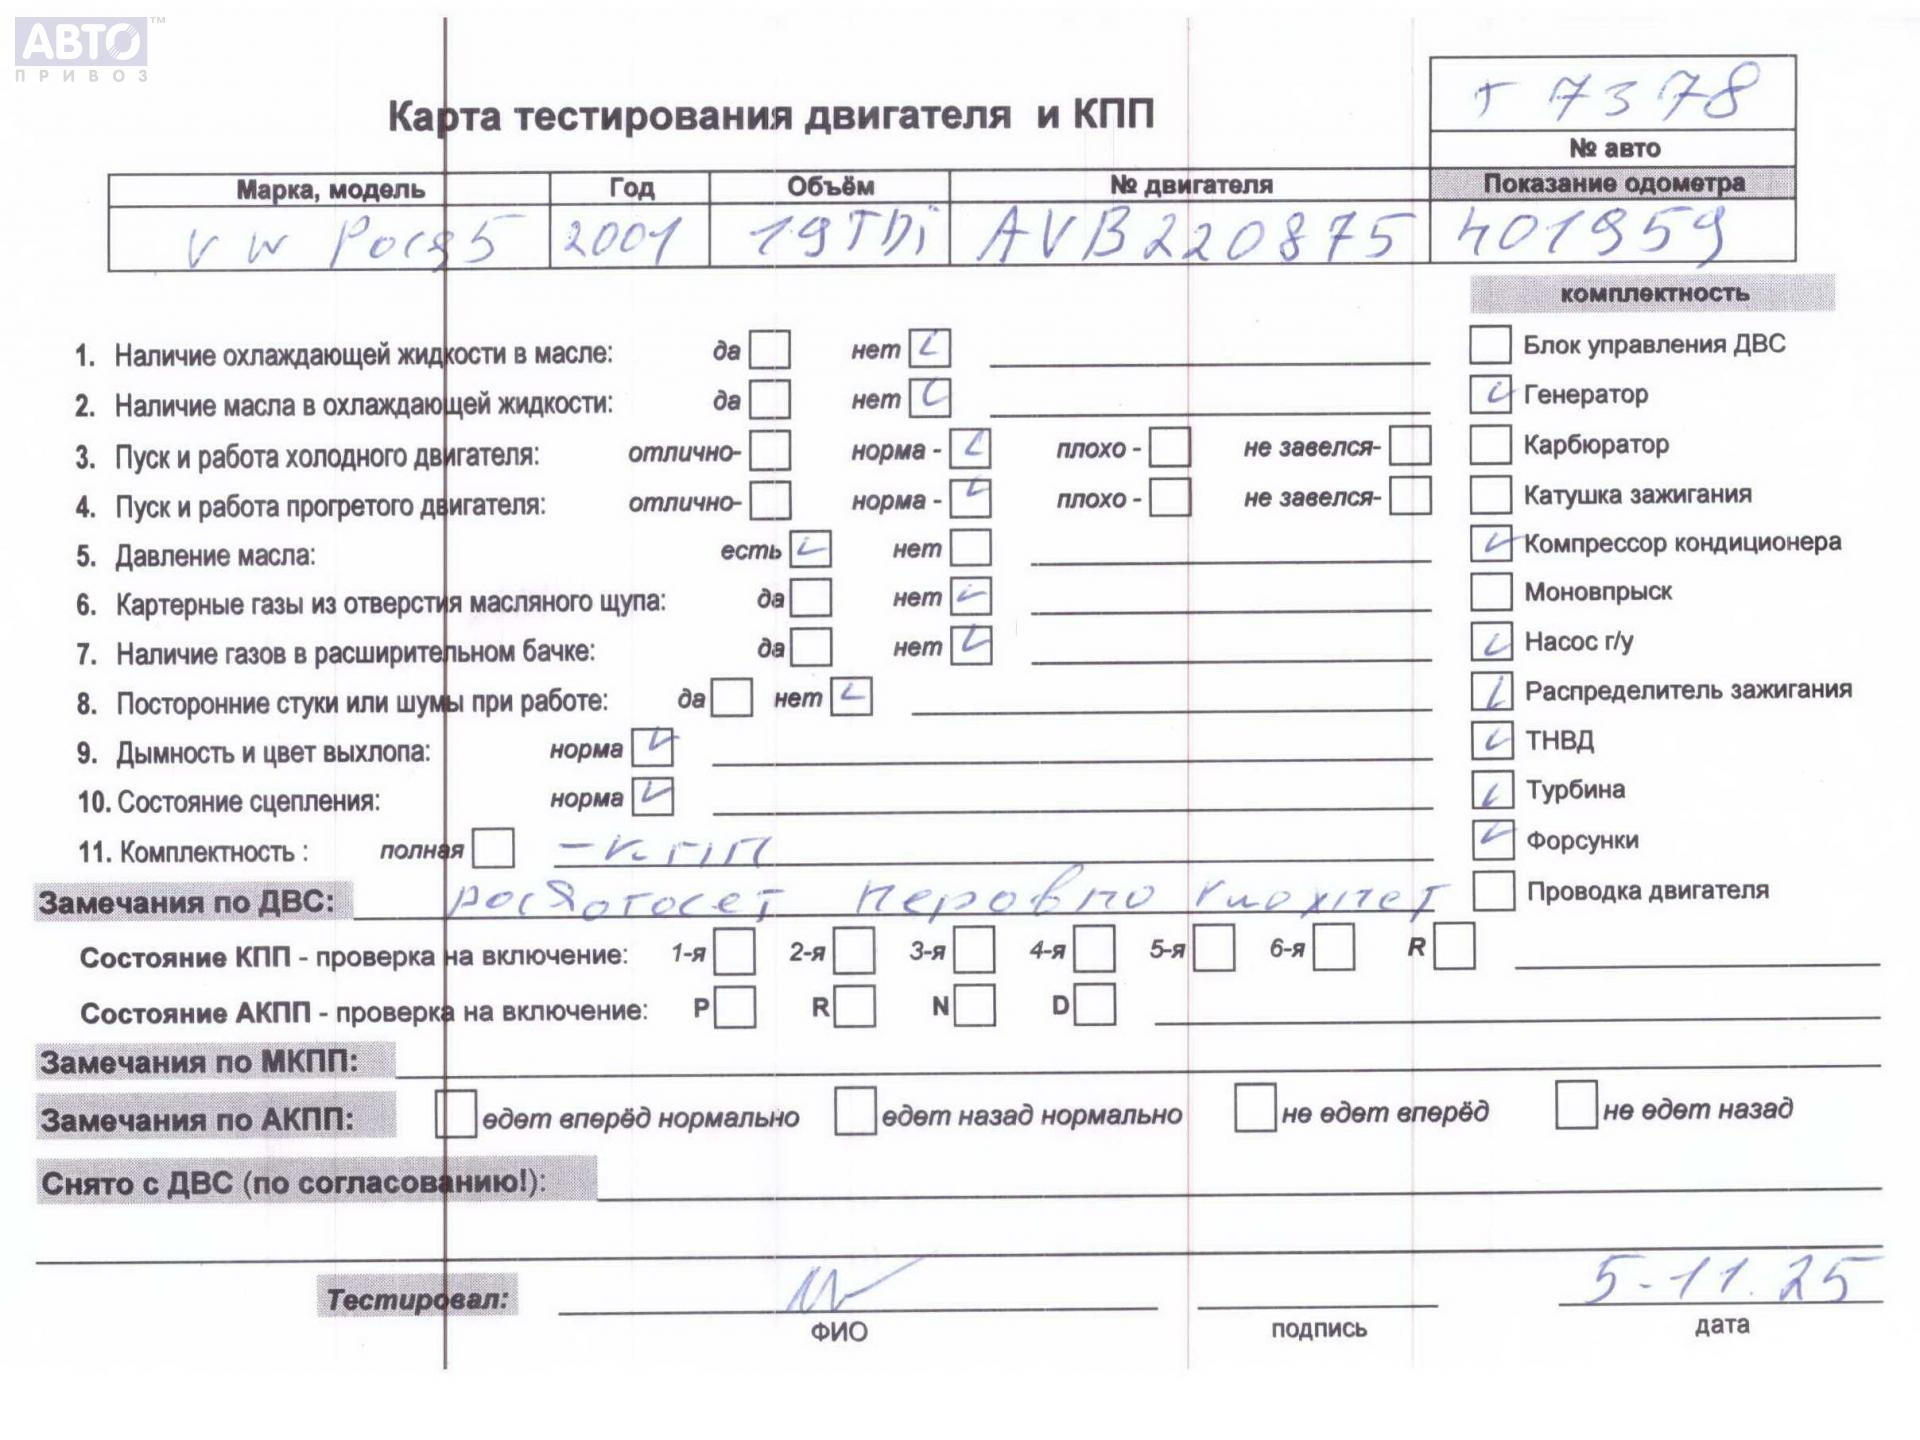 АВТО™
ПРИВОЗ
т 7378
Карта тестирования двигателя и КПП
№ авто
Марка, модель Год Объём № двигателя Показание одометра
VW 2001 19TDi AVB220875 401959
комплектность
1. Наличие охлаждающей жидкости в масле: да нет
Блок управления ДВС
2. Наличие масла в охлаждающей жидкости: да нет
Генератор
3. Пуск и работа холодного двигателя: отлично- норма - плохо - не завелся-
Карбюратор
4. Пуск и работа прогретого двигателя: отлично- норма - плохо - не завелся-
Катушка зажигания
5. Давление масла: есть нет
Компрессор кондиционера
6. Картерные газы из отверстия масляного щупа: да нет
Моновпрыск
7. Наличие газов в расширительном бачке: да нет
Насос г/у
8. Посторонние стуки или шумы при работе: да нет
Распределитель зажигания
9. Дымность и цвет выхлопа: норма
ТНВД
10. Состояние сцепления: норма
Турбина
11. Комплектность : полная - КПП
Форсунки
Замечания по ДВС: работает неровно
Проводка двигателя
Состояние КПП - проверка на включение: 1-я 2-я 3-я 4-я 5-я 6-я R
Состояние АКПП - проверка на включение: P R N D
Замечания по МКПП:
Замечания по АКПП: едет вперёд нормально едет назад нормально не едет вперёд не едет назад
Снято с ДВС (по согласованию!):
Тестировал: 5-11.25
ФИО подпись дата